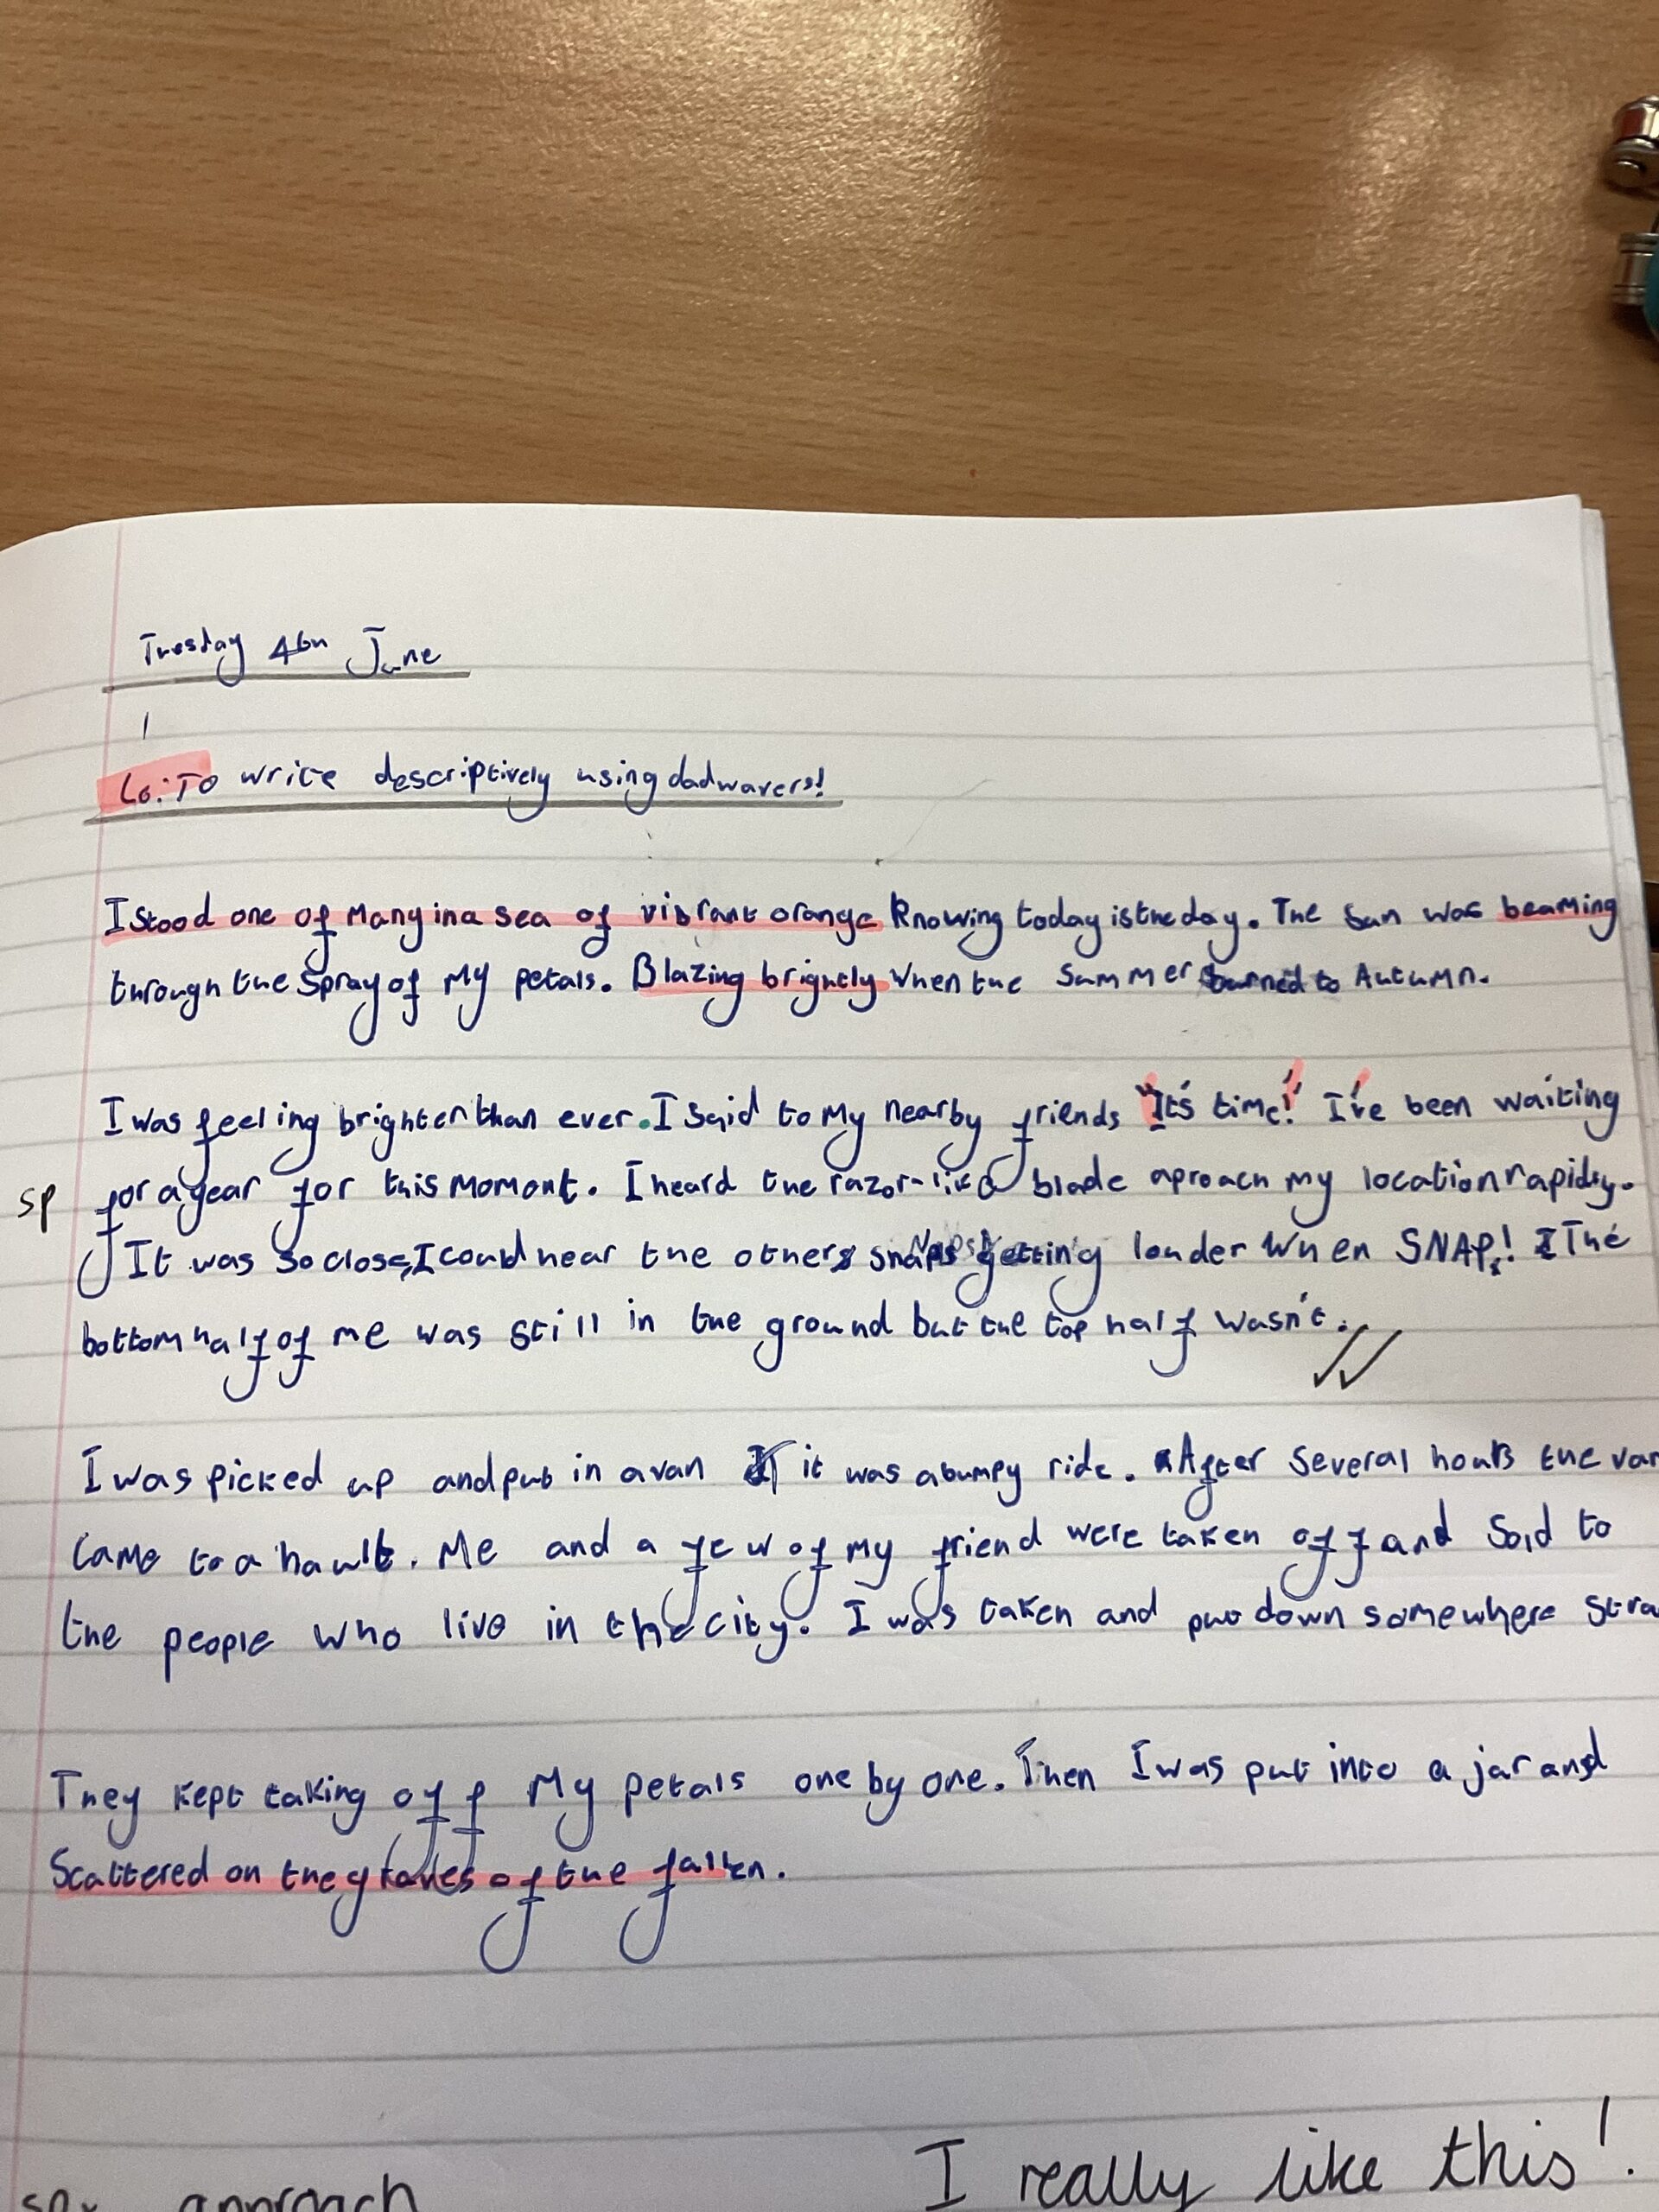 Tuesday 4th June
Lo: To write descriptively using dadwavers!
I stood one of many in a sea of vibrant orange knowing today is the day. The sun was beaming
through the spray of my petals. Blazing brightly when the summer turned to Autumn.
I was feeling brighter than ever. I said to my nearby friends "It's time!" I've been waiting
sp for a year for this moment. I heard the razor-like blade aproach my location rapidly.
It was so close, I could hear the others snaps getting louder when SNAP! The
bottom half of me was still in the ground but the top half wasn't.
I was picked up and put in a van it was a bumpy ride. After several hours the van
came to a hawlt. Me and a few of my friend were taken off and sold to
the people who live in the city. I was taken and put down somewhere stra
They kept taking off my petals one by one. Then I was put into a jar and
scattered on the graves of the fallen.
I really like this!
sp. approach